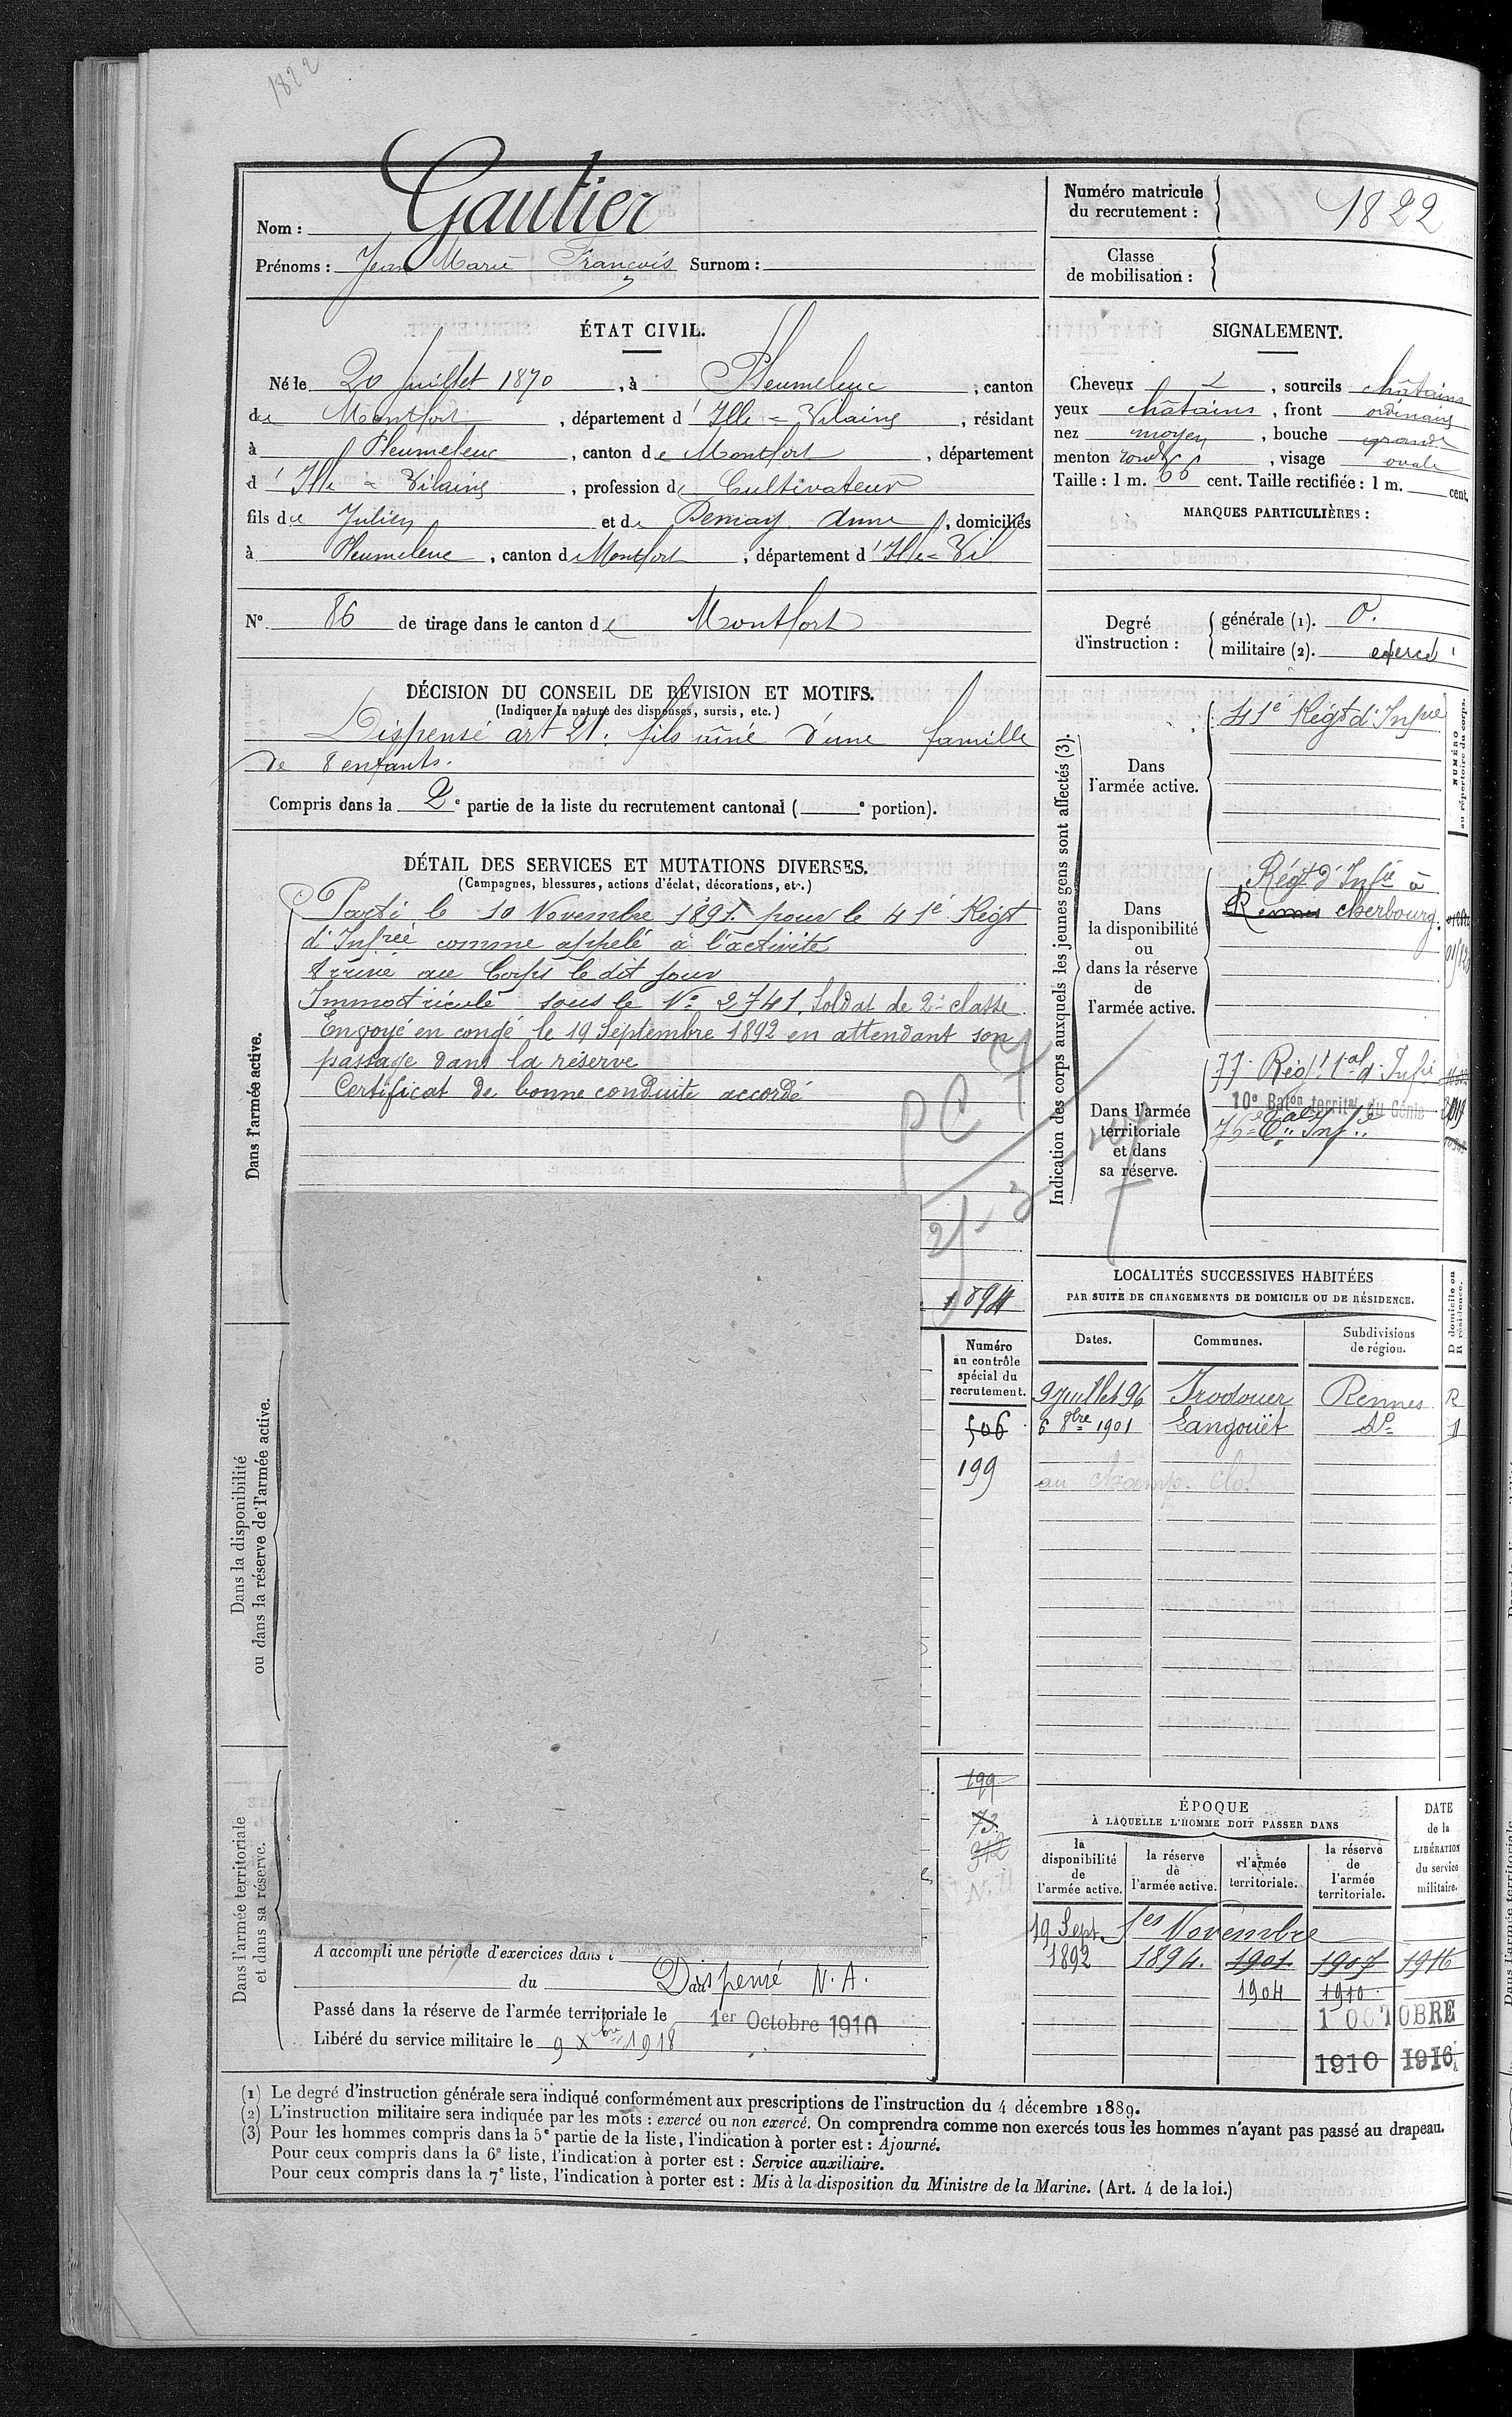 1822
Nom : Gautier
Prénoms : Jean Marie François Surnom :
Numéro matricule du recrutement : 1822
Classe de mobilisation :
ÉTAT CIVIL.
Né le 20 Juillet 1870, à Pleumeleuc, canton
de Montfort, département d'Ille = Vilaine, résidant
à Pleumeleuc, canton de Montfort, département
d'Ille = Vilaine, profession d Cultivateur
fils de Julien et de Demay Anne, domiciliés
à Pleumeleuc, canton d Montfort, département d'Ille = Vil
N° 86 de tirage dans le canton de Montfort
SIGNALEMENT.
Cheveux , sourcils châtains
yeux châtains, front ordinaire
nez moyen, bouche grande
menton rond, visage ovale
Taille : 1 m. 66 cent. Taille rectifiée : 1 m. cent.
MARQUES PARTICULIÈRES :
Degré d'instruction :
générale (1). 0.
militaire (2). exercé
DÉCISION DU CONSEIL DE REVISION ET MOTIFS.
(Indiquer la nature des dispenses, sursis, etc.)
Dispensé art 21 : fils aîné d'une famille
de 8 enfants.
Compris dans la 2e partie de la liste du recrutement cantonal ( e portion).
DÉTAIL DES SERVICES ET MUTATIONS DIVERSES.
(Campagnes, blessures, actions d'éclat, décorations, etc.)
Dans l'armée active.
Parti le 10 Novembre 1891 pour le 41e Régt
d'Infrie comme appelé à l'activité
Arrivé au Corps le dit jour
Immatriculé sous le N° 2741. Soldat de 2e classe
Envoyé en congé le 19 Septembre 1892 en attendant son
passage dans la réserve
Certificat de bonne conduite accordé
PC
1894
Indication des corps auxquels les jeunes gens sont affectés (3).
NUMÉRO au répertoire du corps.
Dans l'armée active.
41e Régt d'Infrie
Dans la disponibilité ou dans la réserve de l'armée active.
Régt d'Infie à
Rennes Cherbourg.
Dans l'armée territoriale et dans sa réserve.
77 Régt tal d'Infie
10e Baton territal du Génie
76e tal Infie
LOCALITÉS SUCCESSIVES HABITÉES
PAR SUITE DE CHANGEMENTS DE DOMICILE OU DE RÉSIDENCE.
Dates. Communes. Subdivisions de région. D domicile ou R résidence.
9 juillet 96 Irodouer Rennes R
6 8bre 1901 Langouët do
au champ clos
Dans la disponibilité
ou dans la réserve de l'armée active.
Numéro
au contrôle
spécial du
recrutement.
506
199
Dans l'armée territoriale
et dans sa réserve.
199
73
312
A accompli une période d'exercices dans l
du Dispensé N. A.
Passé dans la réserve de l'armée territoriale le 1er Octobre 1910
Libéré du service militaire le 9 Xbre 1918
ÉPOQUE
À LAQUELLE L'HOMME DOIT PASSER DANS
la disponibilité de l'armée active.
la réserve de l'armée active.
l'armée territoriale.
la réserve de l'armée territoriale.
DATE de la LIBÉRATION du service militaire.
19 Sept. 1er Novembre
1892 1894. 1901 1907 1916
1904 1910
1 OCTOBRE
1910 1916
(1) Le degré d'instruction générale sera indiqué conformément aux prescriptions de l'instruction du 4 décembre 1889.
(2) L'instruction militaire sera indiquée par les mots : exercé ou non exercé. On comprendra comme non exercés tous les hommes n'ayant pas passé au drapeau.
(3) Pour les hommes compris dans la 5e partie de la liste, l'indication à porter est : Ajourné.
Pour ceux compris dans la 6e liste, l'indication à porter est : Service auxiliaire.
Pour ceux compris dans la 7e liste, l'indication à porter est : Mis à la disposition du Ministre de la Marine. (Art. 4 de la loi.)